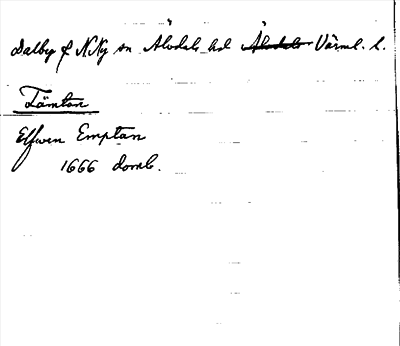 Dalby o N Ny sn Älvdals hd Älvdals Värml. l.
Tämtan
Elfwen Emptan
1666 domb.